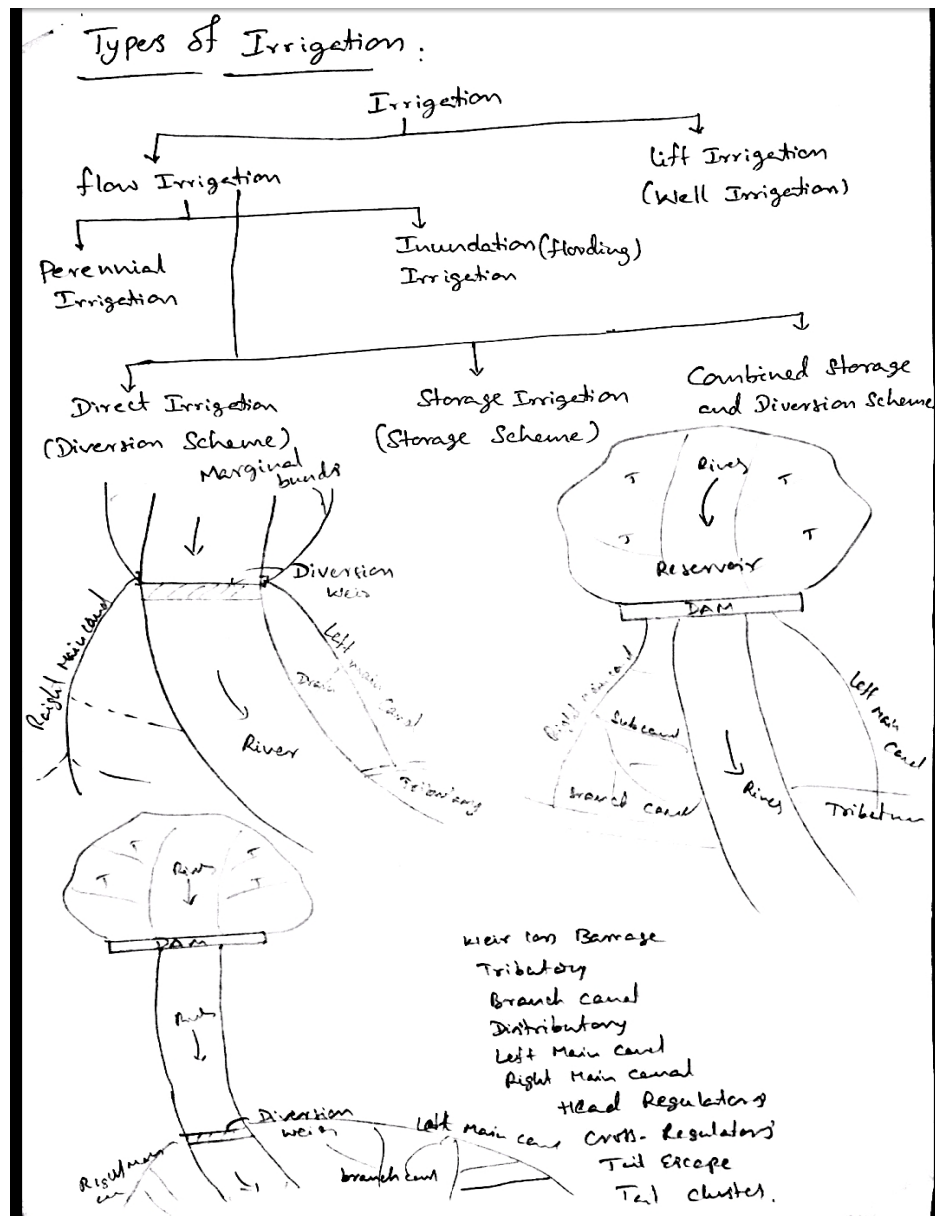 Types of Irrigation.
Irrigation
flow Irrigation
lift Irrigation
(Well Irrigation)
Perennial
Irrigation
Inundation (flooding)
Irrigation
Direct Irrigation
(Diversion Scheme)
Storage Irrigation
(Storage Scheme)
Combined Storage
and Diversion Scheme
Marginal
bunds
Diversion
weir
Raight Main Canal
Left main Canal
Drain
River
River
T
T
T
T
Reservoir
DAM
Subcanal
Branch canal
River
Left Main
Canal
T
T
T
T
River
DAM
River
Diversion
weir
Left Main
branch canal
Weir Barrage
Tributory
Branch canal
Distributory
Left Main Canal
Right Main Canal
Head Regulators
Cross-Regulators
Tail Escape
Tail cluster.